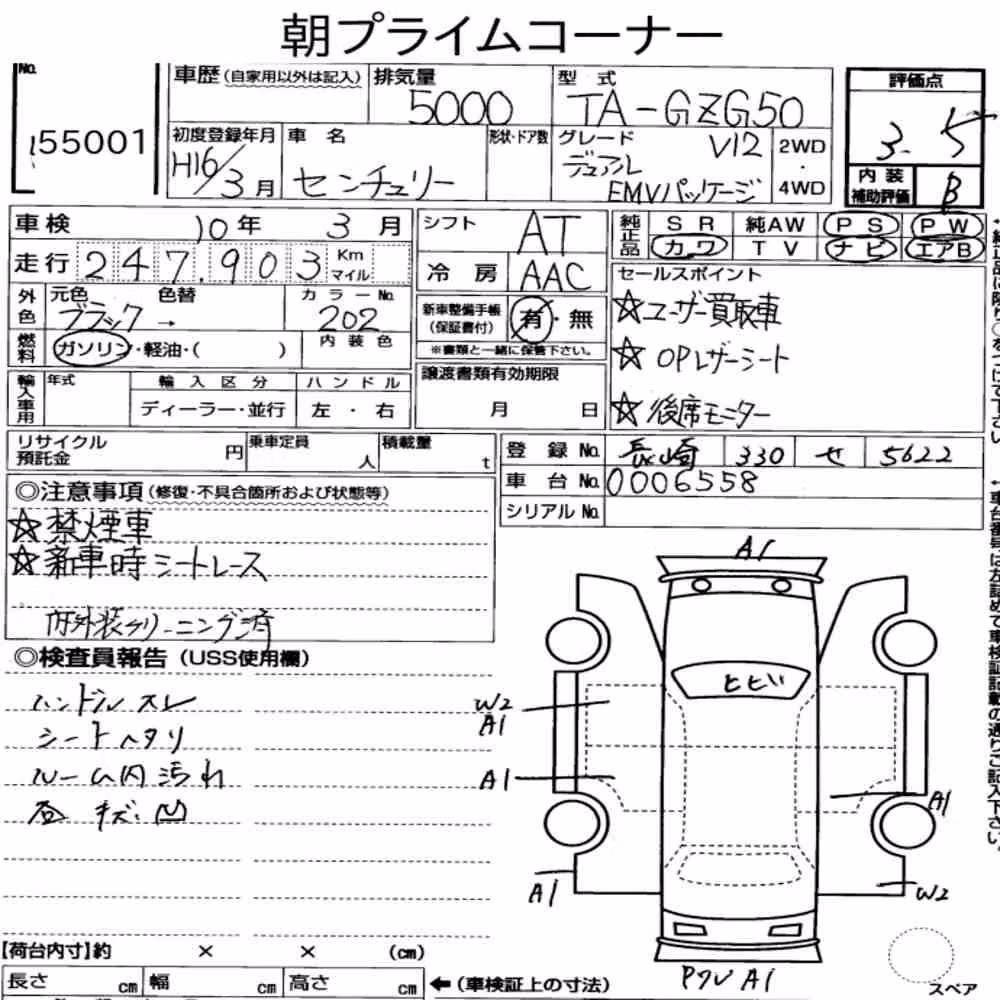 朝プライムコーナー
No.
55001
車歴(自家用以外は記入)
排気量
5000
型 式
TA-GZG50
評価点
3.5
初度登録年月
H16/3月
車 名
センチュリー
形状・ドア数
グレード
V12
デュアル
EMVパッケージ
2WD
・
4WD
内装
補助評価
B
車検 10年 3月
シフト
AT
純正品
SR 純AW PS PW
カワ TV ナビ エアB
走行 247.903 Km マイル
冷房 AAC
セールスポイント
☆ユーザー買取車
☆OPレザーシート
☆後席モニター
外色
元色 色替
ブラック →
カラーNo.
202
新車整備手帳
(保証書付)
有・無
※書類と一緒に保管下さい。
燃料
ガソリン・軽油・( )
内装色
輸入車用
年式
輸入区分
ディーラー・並行
ハンドル
左・右
譲渡書類有効期限
月 日
リサイクル
預託金
円
乗車定員
人
積載量
t
登録No. 長崎 330 せ 5622
車台No. 0006558
シリアルNo.
◎注意事項(修復・不具合箇所および状態等)
☆禁煙車
☆新車時シートレース
内外装クリーニング済
◎検査員報告(USS使用欄)
ハンドルスレ
シートヘタリ
ルーム内汚れ
キズ.凹
A1
トビ
W2
A1
A1
A1
A1
W2
A1
スペア
【荷台内寸】約 × × (cm)
長さ cm 幅 cm 高さ cm
←(車検証上の寸法)